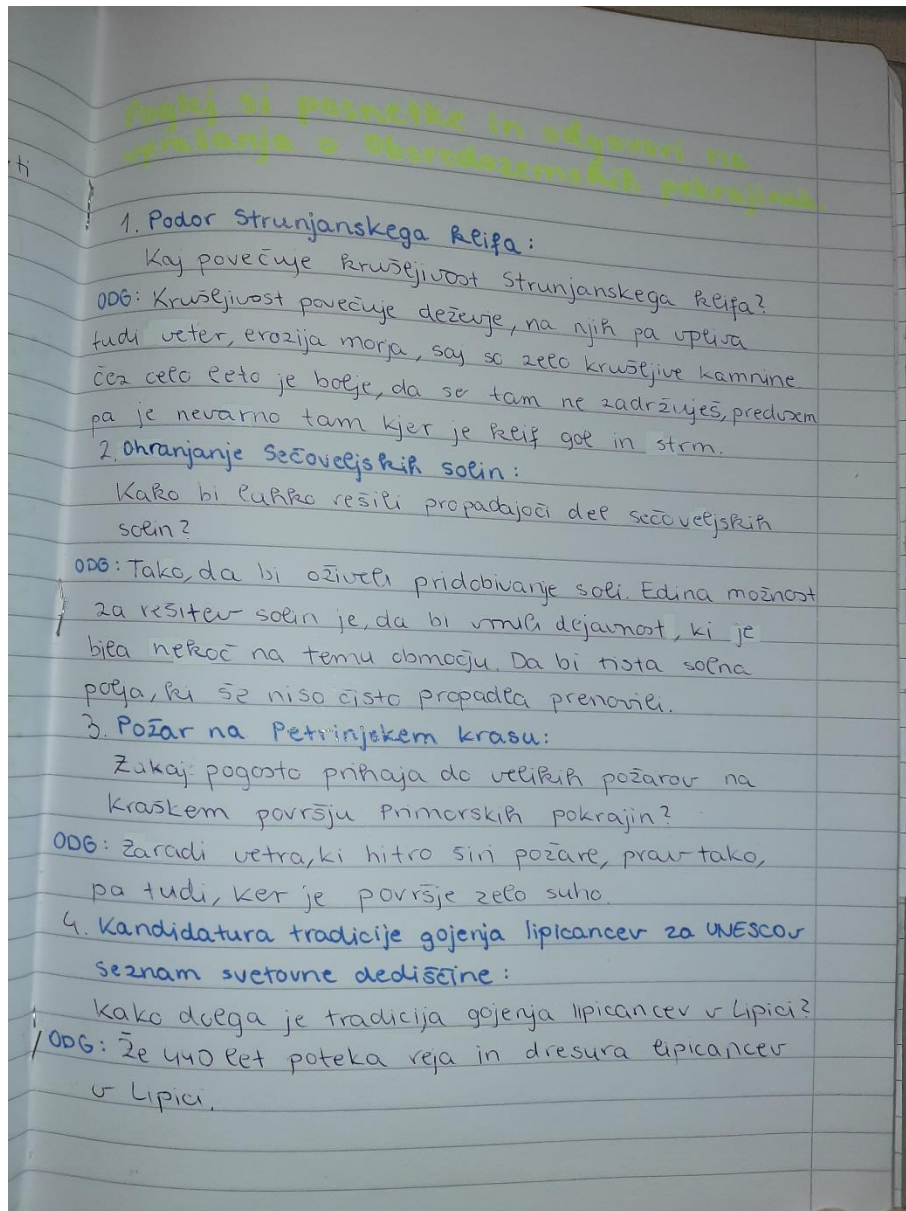 Poglej si posnetke in odgovori na
vprašanja o Obsredozemskih pokrajinah.
ti
1. Podor Strunjanskega klifa:
Kaj povečuje krušljivost Strunjanskega klifa?
ODG: Krušljivost povečuje deževje, na njih pa vpliva
tudi veter, erozija morja, saj so zelo krušljive kamnine.
čez celo leto je bolje, da se tam ne zadržuješ, predvsem
pa je nevarno tam kjer je klif gol in strm.
2. Ohranjanje Sečoveljskih solin:
Kako bi lahko rešili propadajoči del sečoveljskih
solin?
ODG: Tako, da bi oživeli pridobivanje soli. Edina možnost
za rešitev solin je, da bi vrnili dejavnost, ki je
bila nekoč na temu območju. Da bi tista solna
polja, ki še niso čisto propadla prenovili.
3. Požar na Petrinjskem krasu:
Zakaj pogosto prihaja do velikih požarov na
kraškem površju Primorskih pokrajin?
ODG: Zaradi vetra, ki hitro širi požare, prav tako,
pa tudi, ker je površje zelo suho.
4. Kandidatura tradicije gojenja lipicancev za UNESCOv
seznam svetovne dediščine:
Kako dolga je tradicija gojenja lipicancev v Lipici?
ODG: Že 440 let poteka reja in dresura lipicancev
v Lipici.